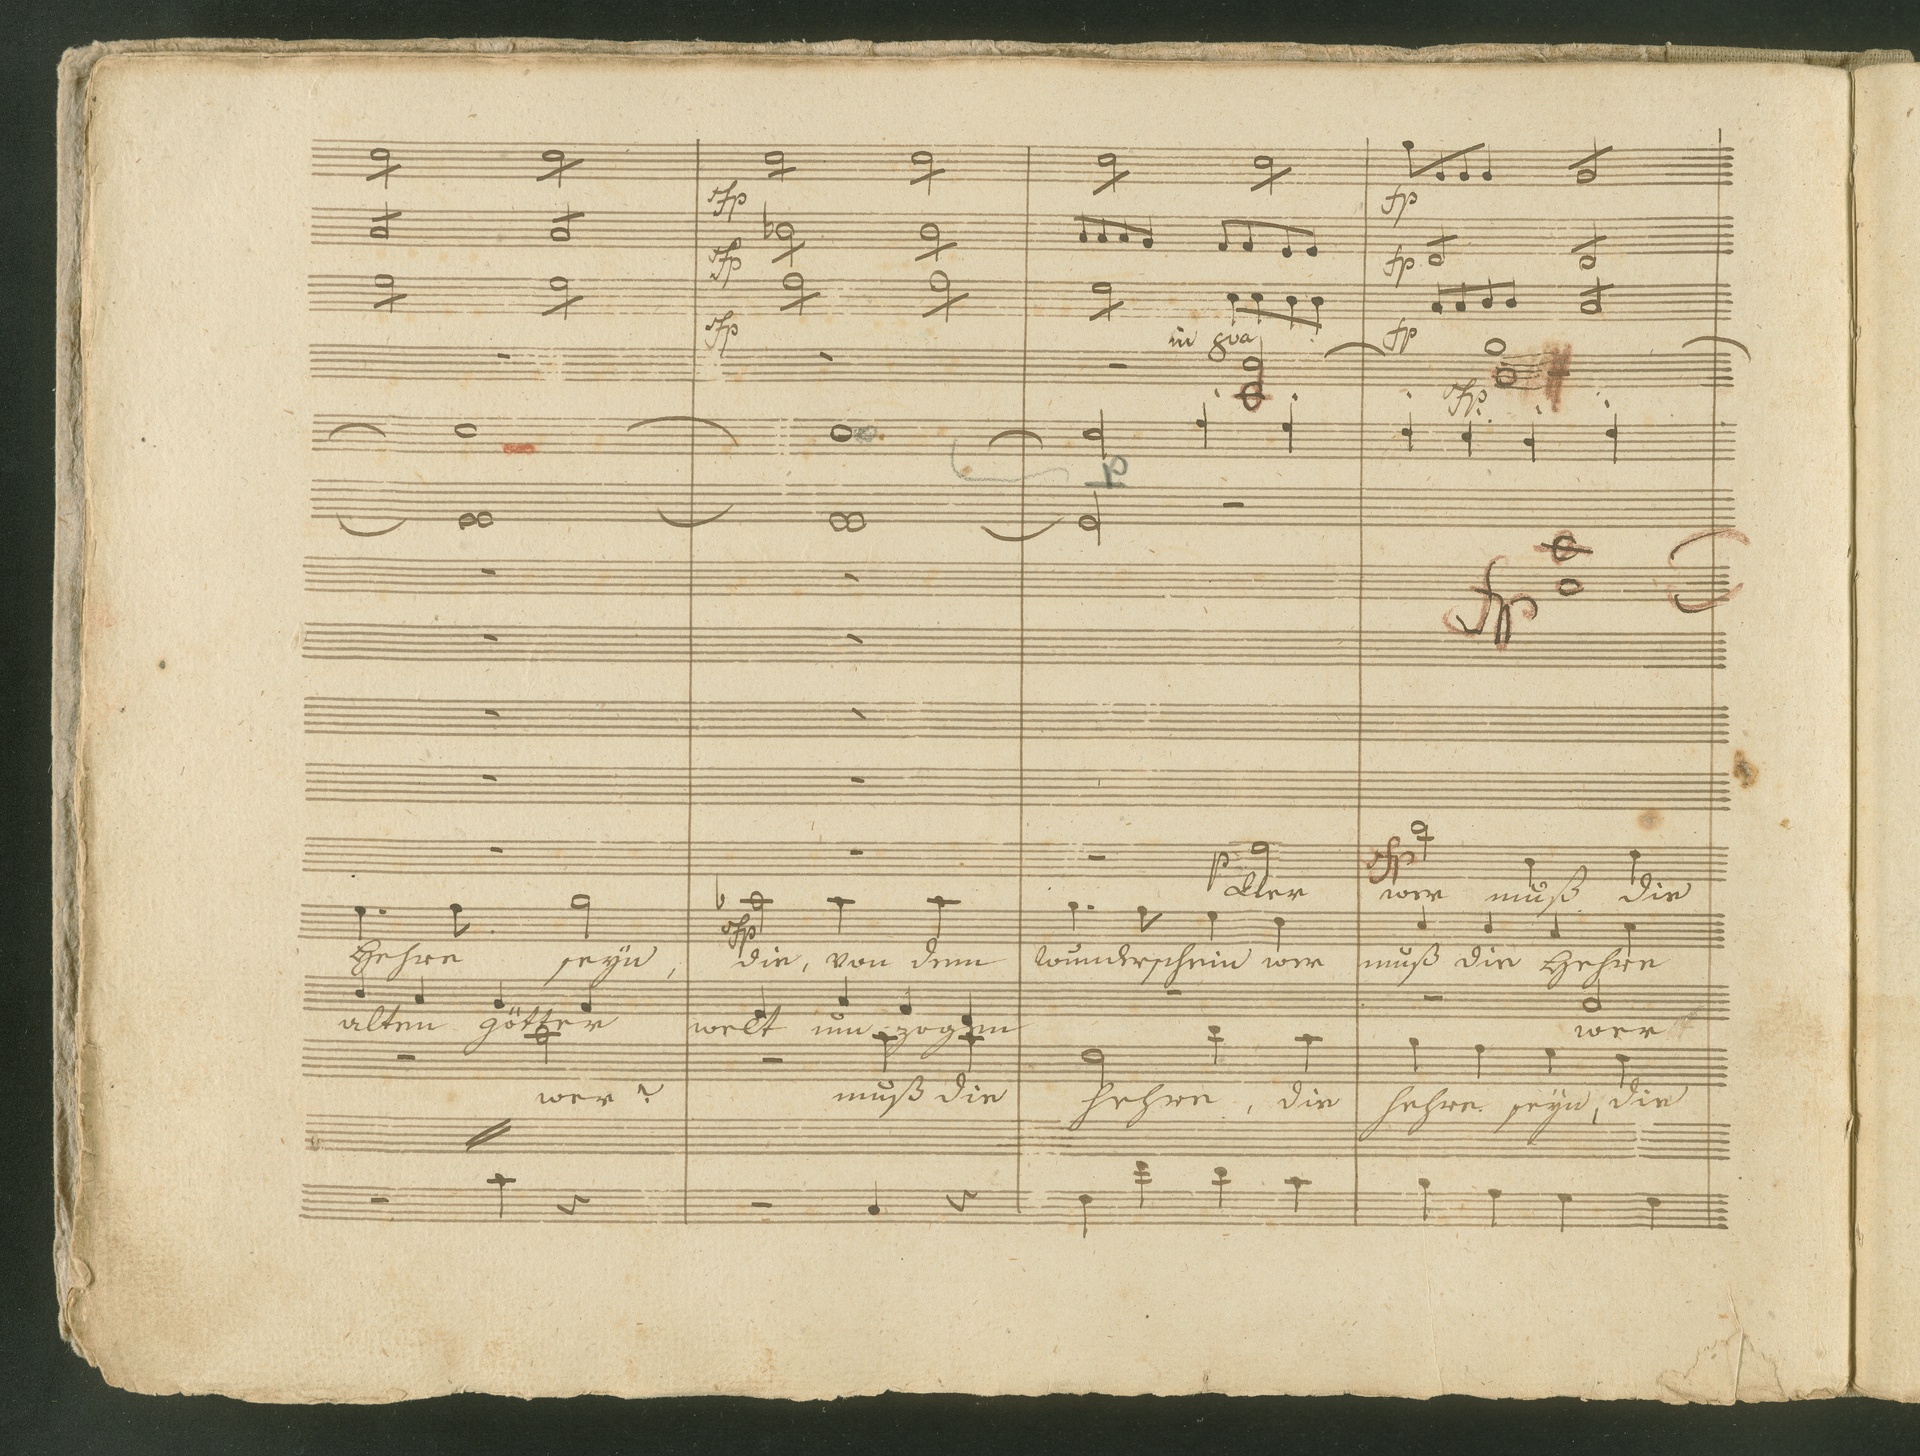 sfp fp
sfp fp
sfp in 8va fp
sfp.
p
fp
p sfp
Wer wer muß die
sfp
Hehre seyn, die, von dem Wunderschein wer muß die Hehre
alten götter welt um zogen wer
wer? muß die hehre, die hehre seyn, die